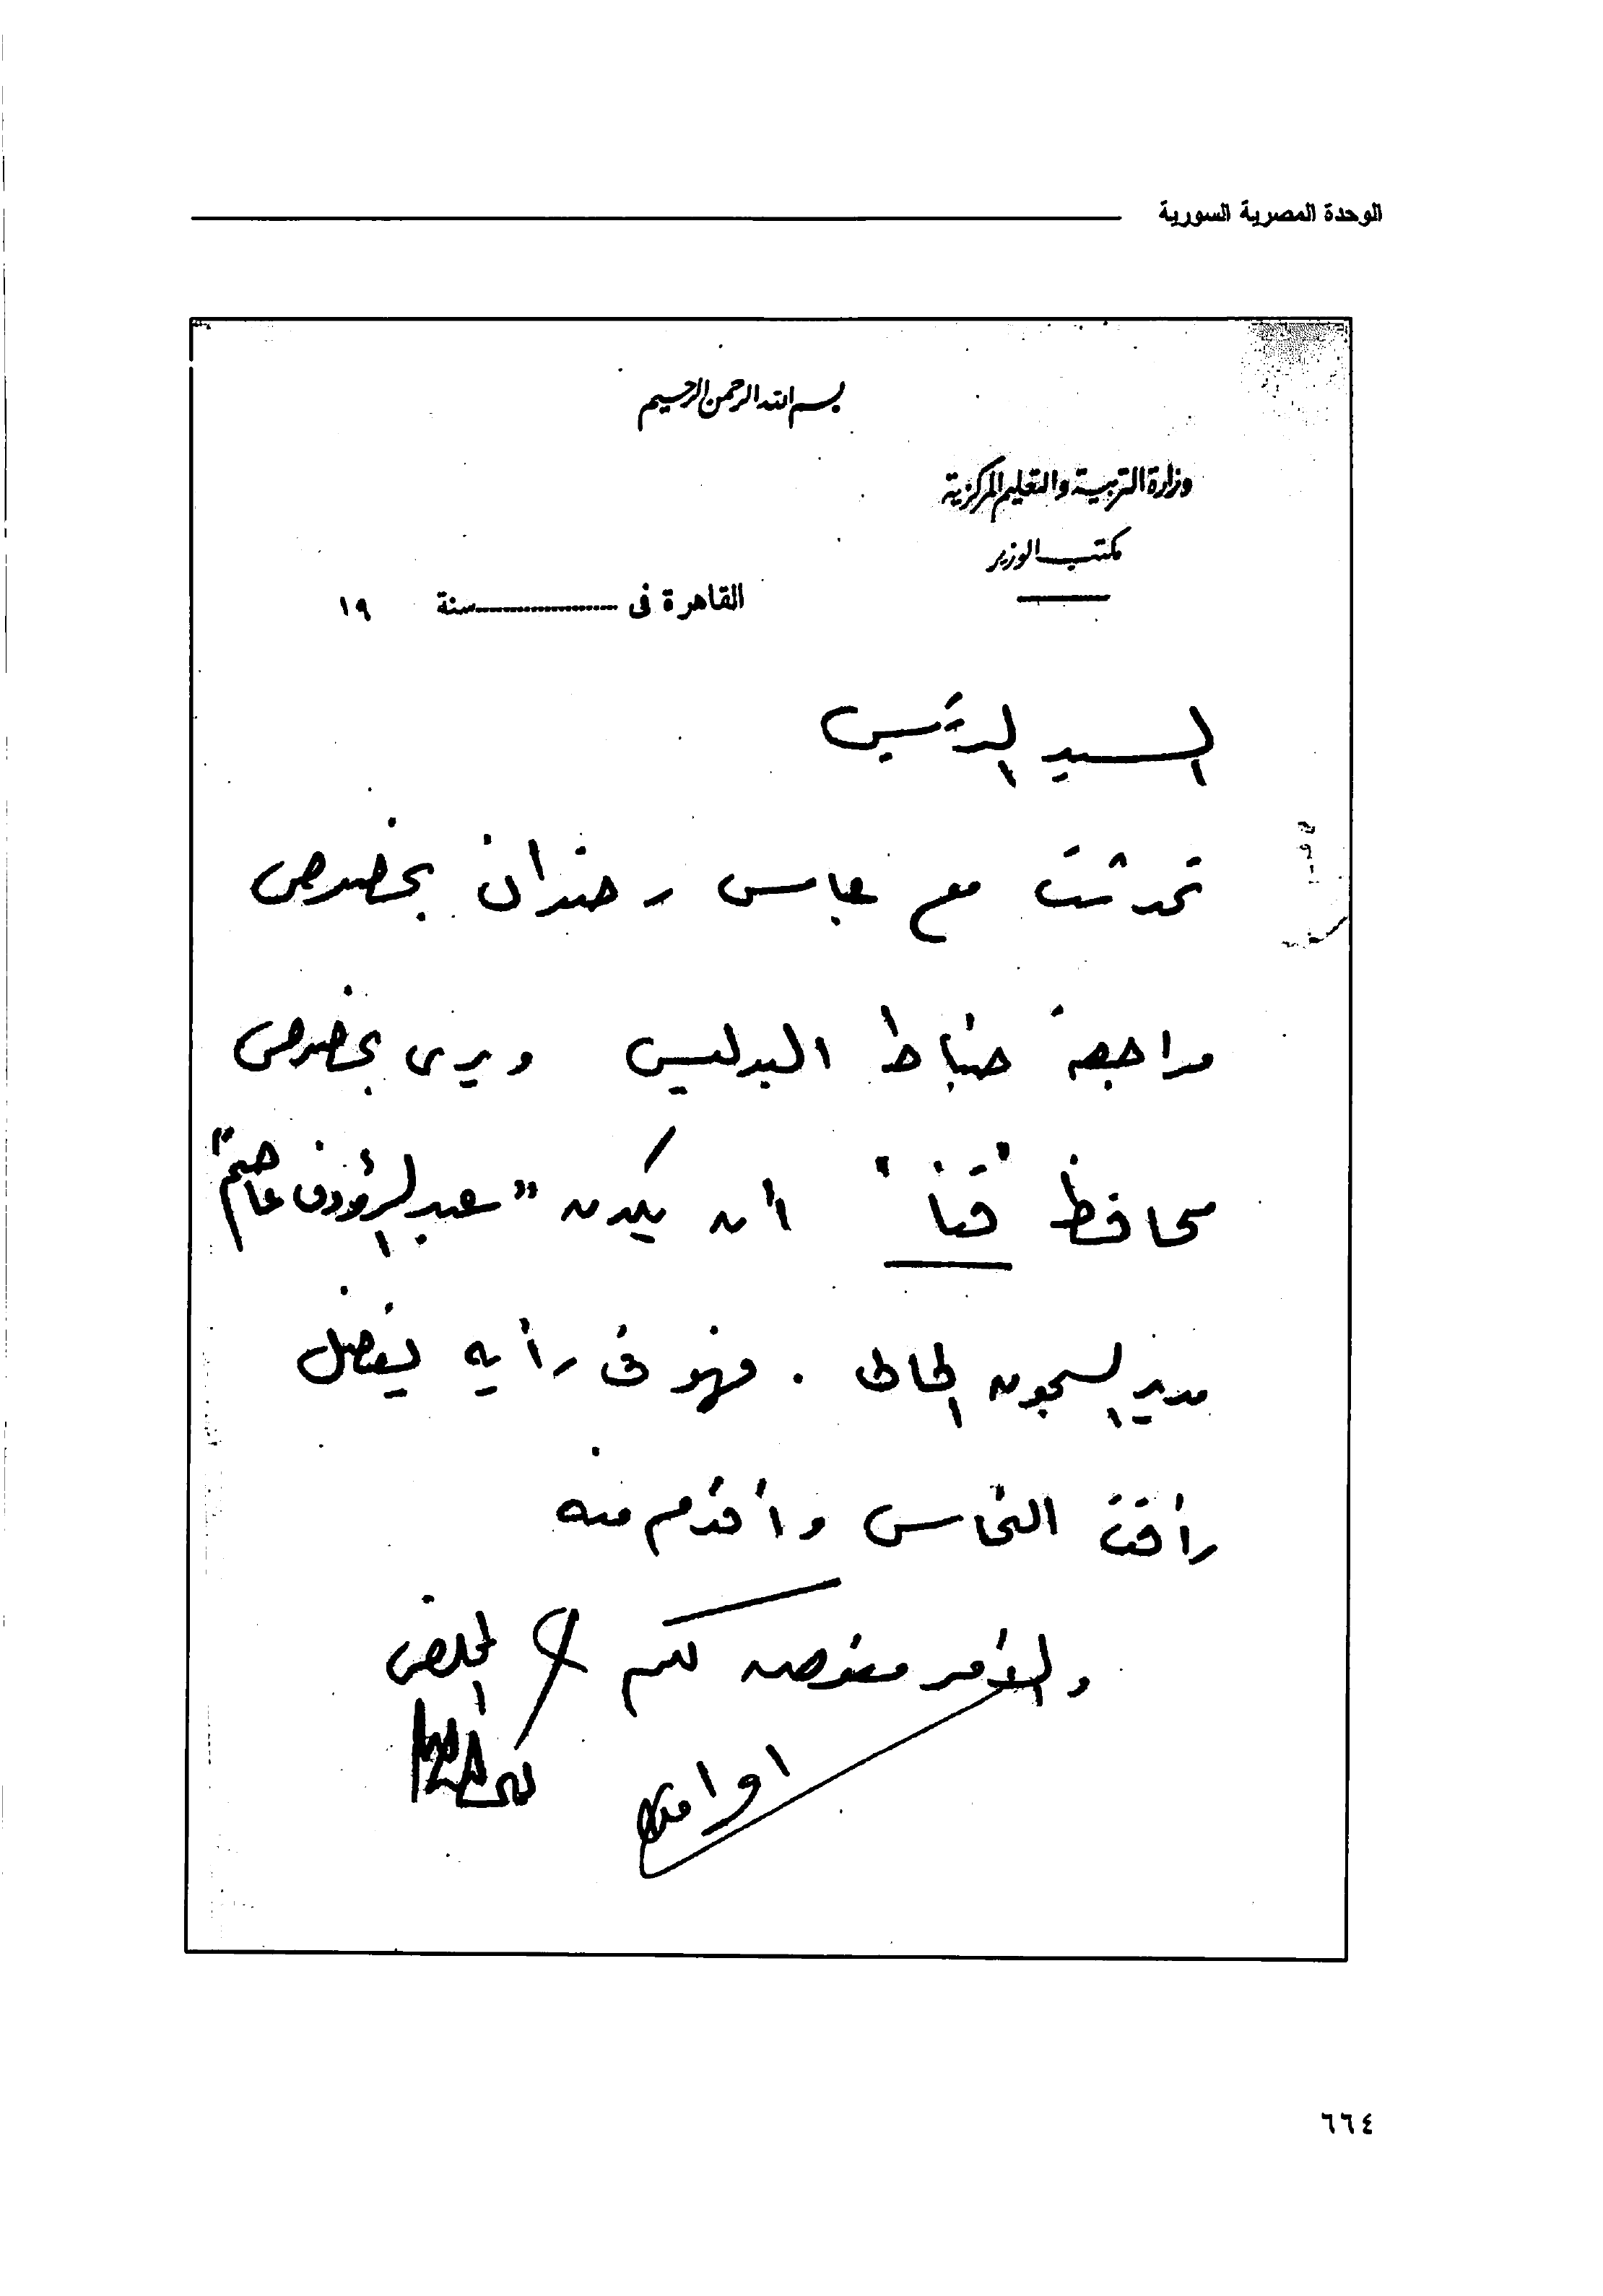 الوحدة المصرية السورية
بسم الله الرحمن الرحيم
وزارة التربية والتعليم المركزية
مكتب الوزير
القاهرة فى ............... سنة ١٩
السيد الرئيس
تحدثت مع عباس رضوان بخصوص
مراجعة ضباط البوليس ويرى بخصوص
محافظ "قنا" أن يكون "عبد الرؤوف عاصم"
مدير السجون الحالى . فهو فى رأيه يفضل
رأفت النحاس وأقدم منه
والأمر مفوض لكم
المخلص